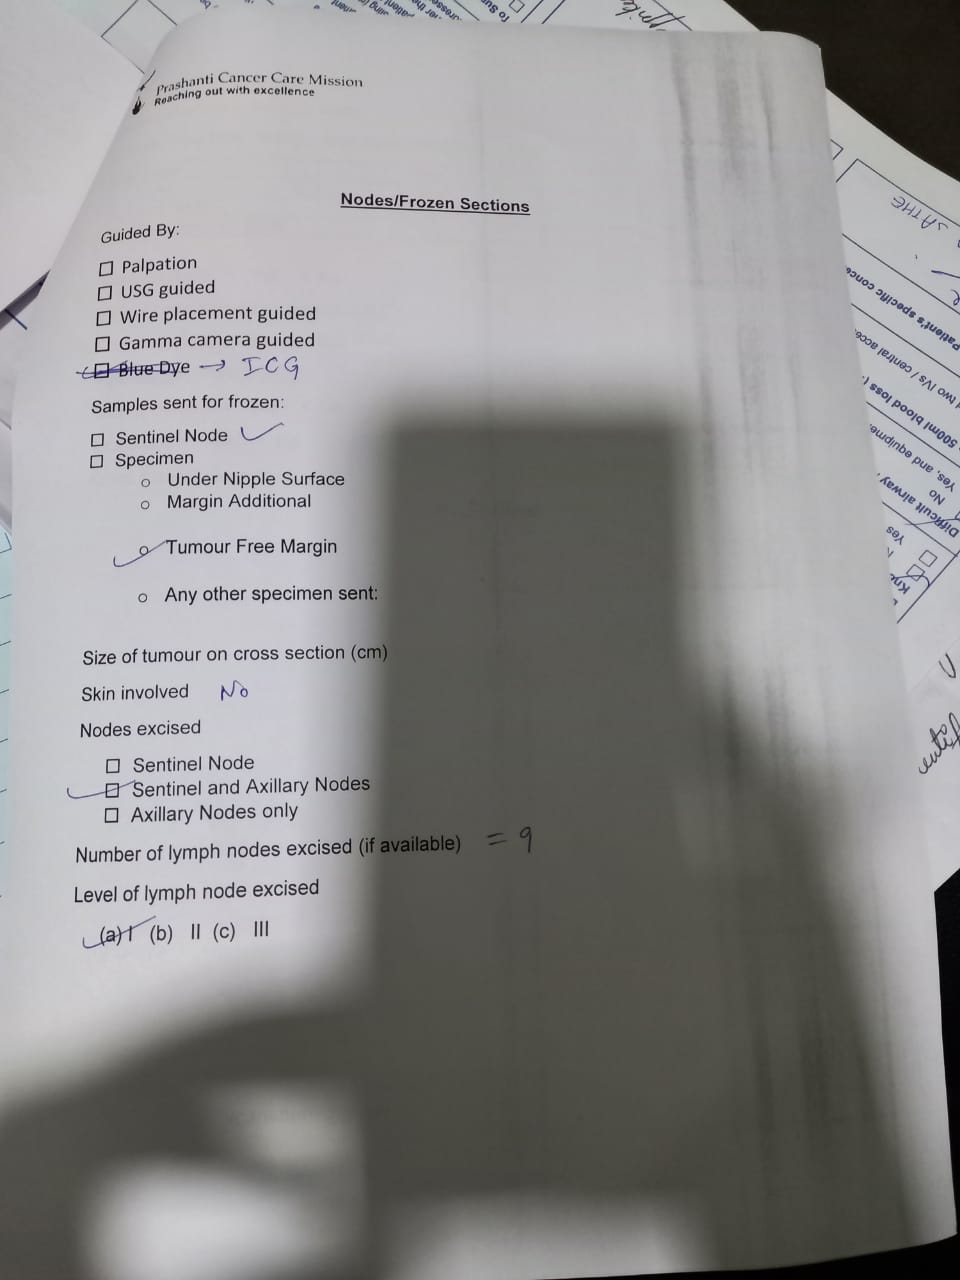 Prashanti Cancer Care Mission
Reaching out with excellence
Nodes/Frozen Sections
Guided By:
☐ Palpation
☐ USG guided
☐ Wire placement guided
☐ Gamma camera guided
☐ Blue Dye → ICG
Samples sent for frozen:
☐ Sentinel Node ✓
☐ Specimen
o Under Nipple Surface
o Margin Additional
✓ o Tumour Free Margin
o Any other specimen sent:
Size of tumour on cross section (cm)
Skin involved No
Nodes excised
☐ Sentinel Node
✓ ☐ Sentinel and Axillary Nodes
☐ Axillary Nodes only
Number of lymph nodes excised (if available) = 9
Level of lymph node excised
✓ (a) I (b) II (c) III
SATHE
Patient's specific conce
two IVs / central acce
500ml blood loss (
Yes, and equipme
No
Difficult airway
Yes
To Su